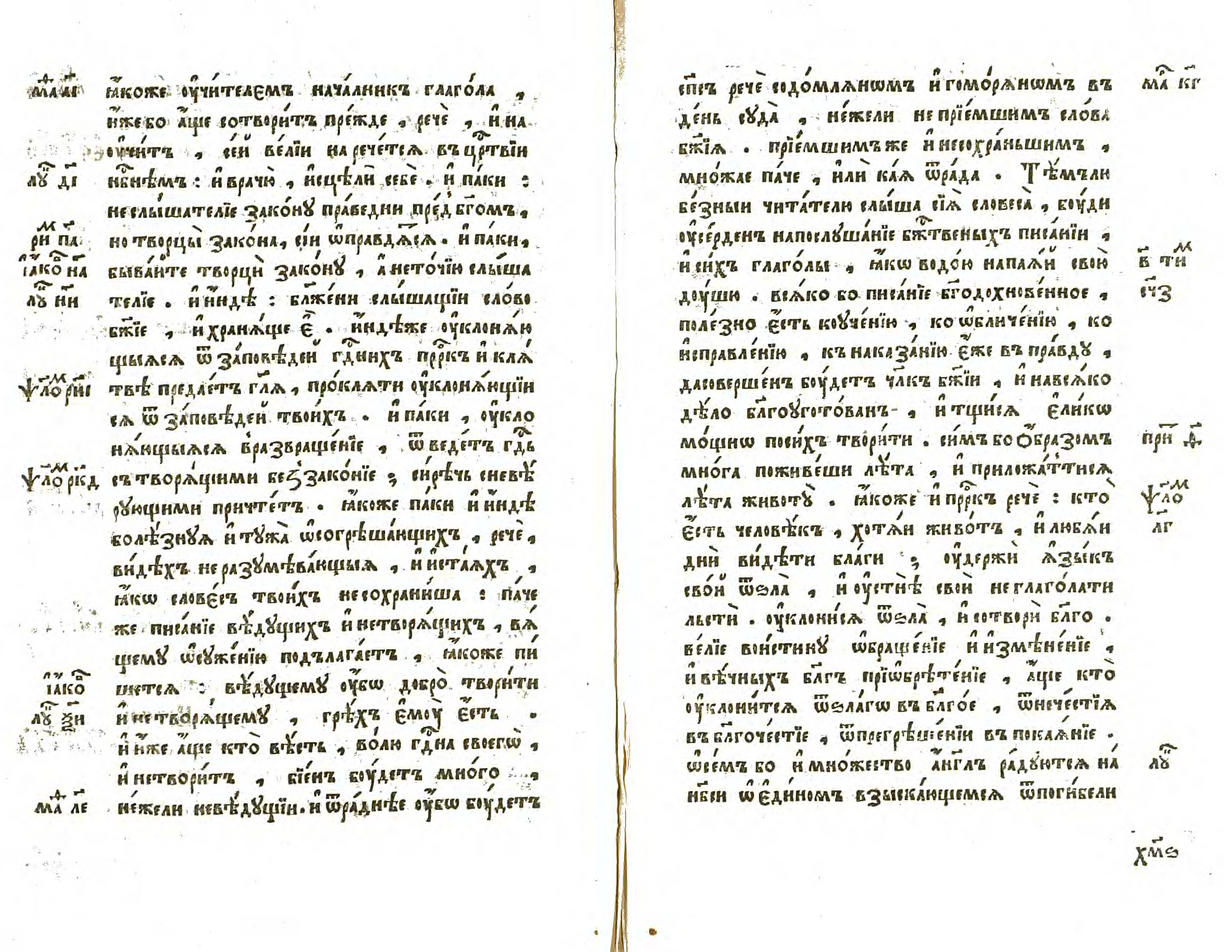 ꙗ҆́коже ᲂу҆чи́телемъ нача́лникъ глаго́ла ,
и҆́же бо а҆́ще сотвори́тъ пре́жде , речѐ , и҆ на
ᲂу҆чи́тъ , се́й ве́лїи нарече́тся въ цр҇твїи
нбⷭ҇нѣмъ : и҆ врачю̀ , и҆сцѣлѝ себѐ . и҆ па́ки :
не слы́шателїе зако́нꙋ пра́ведни пред̾ бг҃омъ ,
но творцы̀ зако́на , сі́и ѡ҆правдѧ́тсѧ . и҆ па́ки ,
быва́йте творцѝ зако́нꙋ , а҆ не то́чїю слы́ша
телїе . и҆ и҆́ндѣ : бл҃же́ни слы́шащїи сло́во
бж҃їе , и҆ хранѧ́ще є҆̀ . и҆́ндѣже ᲂу҆клонѧ́ю
щыѧсѧ ѿ за́повѣдей гдⷭ҇нихъ прⷪ҇ркъ и҆ клѧ́
твѣ предае́тъ гл҃ѧ , про́клѧти ᲂу҆клонѧ́ющїи
сѧ ѿ за́повѣдей твои́хъ . и҆ па́ки , ᲂу҆кло
нѧ́ющыѧсѧ в̾развраще́нїе , ѿведе́тъ гдⷭ҇ь
съ творѧ́щими беззако́нїе ; си́рѣчь с невѣ́
рꙋющими причте́тъ . ꙗ҆́коже па́ки и҆ и҆́ндѣ
болѣ́знꙋѧ и҆ тꙋжа̀ ѡ҆ согрѣша́ющихъ , речѐ ,
ви́дѣхъ не разꙋмѣва́ющыѧ , и҆ и҆ста́ѧхъ ,
ꙗ҆́кѡ слове́съ твои́хъ не сохрани́ша : па́че
же писа́нїе вѣ́дꙋщихъ и҆ нетворѧ́щихъ , вѧ́
щемꙋ ѡ҆сꙋже́нїю подълага́етъ , ꙗ҆́коже пи
шетсѧ : вѣ́дꙋщемꙋ ᲂу҆́бѡ добро̀ твори́ти
и҆ не творѧ́щемꙋ , грѣ́хъ є҆мᲂу̀ є҆́сть .
и҆ и҆́же а҆́ще кто̀ вѣ́сть , во́лю гдⷭ҇на своегѡ̀ ,
и҆ нетвори́тъ , бїе́нъ бᲂу́детъ мно́го ,
не́жели невѣ́дꙋщїи . и҆ ѿра́днѣе ᲂу҆́бѡ бᲂу́детъ
ри па
і҆а́кѡ на
лꙋ҃ ни
ѱало рни
ѱало ркд
і҆а́кѡ
ма ле
сп҃съ речѐ содо́млѧнѡмъ и҆ гомо́рѧнѡмъ въ
де́нь сꙋда̀ , не́жели не прїе́мшимъ сло́ва
бж҃їѧ . прїе́мшимъже и҆ несохра́ньшимъ ,
мно́жае па́че , и҆лѝ ка́ѧ ѿра́да . Тѣ́мъ ли
бе́зныи чита́телю слы́ша сїѧ̀ словеса̀ , бᲂу́ди
ᲂу҆се́рденъ напослꙋша́нїе бж҃твеныхъ писа́нїи ,
и҆ си́хъ глаго́лы , ꙗ҆́кѡ водо́ю напаѧ́й свою̀
дᲂу́шю . всѧ́ко бо писа́нїе бг҃одохнове́нное ,
поле́зно є҆́сть коᲂуче́нїю , ко ѡ҆бличе́нїю , ко
и҆справле́нїю , къ наказа́нїю є҆́же въ пра́вдꙋ ,
да соверше́нъ бᲂу́детъ чл҃къ бж҃їи , и҆ навсѧ́ко
дѣ́ло благоᲂугото́ванъ , и҆ тщи́сѧ є҆ли́кѡ
мо́щнѡ посихъ твори́ти . си́мъ бо ѻ҆́бразомъ
мно́га поживе́ши лѣ́та , и҆ приложа́ттисѧ
лѣ́та животꙋ̀ . ꙗ҆́коже и҆ прⷪ҇ркъ речѐ : кто̀
є҆́сть человѣ́къ , хотѧ́и живо́тъ , и҆ любѧ́и
днѝ ви́дѣти бла́ги ; ᲂу҆держѝ ѧ҆зы́къ
сво́й ѿѕла̀ , и҆ ᲂу҆стнѣ̀ свои̑ не глаго́лати
льстѝ . ᲂу҆клони́сѧ ѿѕла̀ , и҆ сотворѝ бл҃го .
ве́лїе вои́стинꙋ ѡ҆браще́нїе и҆ и҆змѣне́нїе ,
и҆ вѣ́чныхъ бл҃гъ прїѡбрѣ́тенїе , а҆́ще кто̀
ᲂу҆клони́тсѧ ѿѕла́гѡ въ бл҃го́е , ѿнече́стїѧ
въ бл҃гоче́стїе , ѿпрегрѣше́нїи въ покаѧ́нїе .
ѡ҆се́мъ бо и҆ мно́жество а҆́нгл҃ъ ра́дꙋютсѧ на
нб҃си ѡ҆ є҆ди́номъ взыска́ющемсѧ ѿпоги́бели
ма кг
в тим
сч҃з
ѱало
лг
лꙋ҃
хм҃ѕ